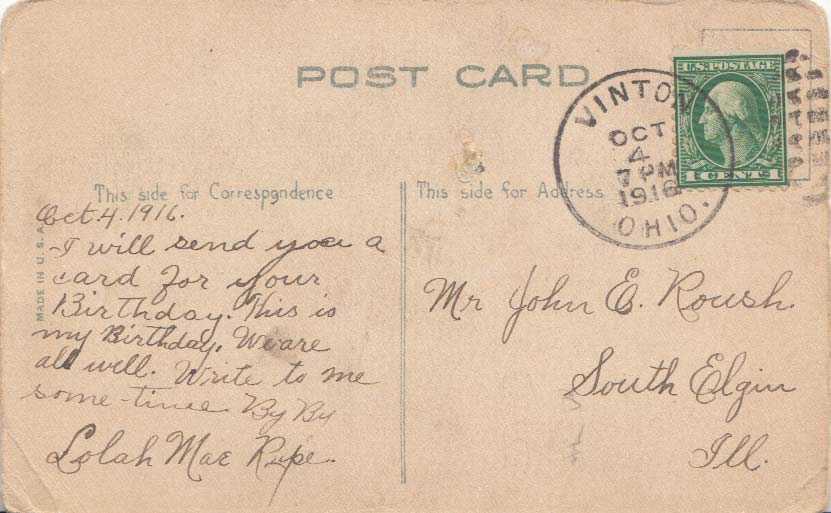 POST CARD
U.S. POSTAGE
1 CENT 1
VINTON
OCT
4
7 PM
1916
OHIO.
This side for Correspondence
This side for Address
MADE IN U.S.A.
Oct. 4. 1916.
I will send you a
card for your
Birthday. This is
my Birthday. We are
all well. Write to me
some-time By By
Lolah Mae Rupe.
Mr John E. Roush.
South Elgin
Ill.